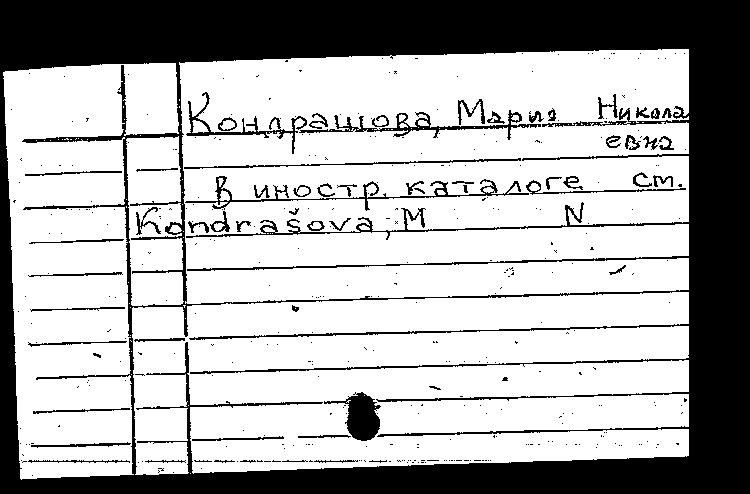 Кондрашова, Мария Никола
евна
В иностр. каталоге см.
Kondrašova, M N